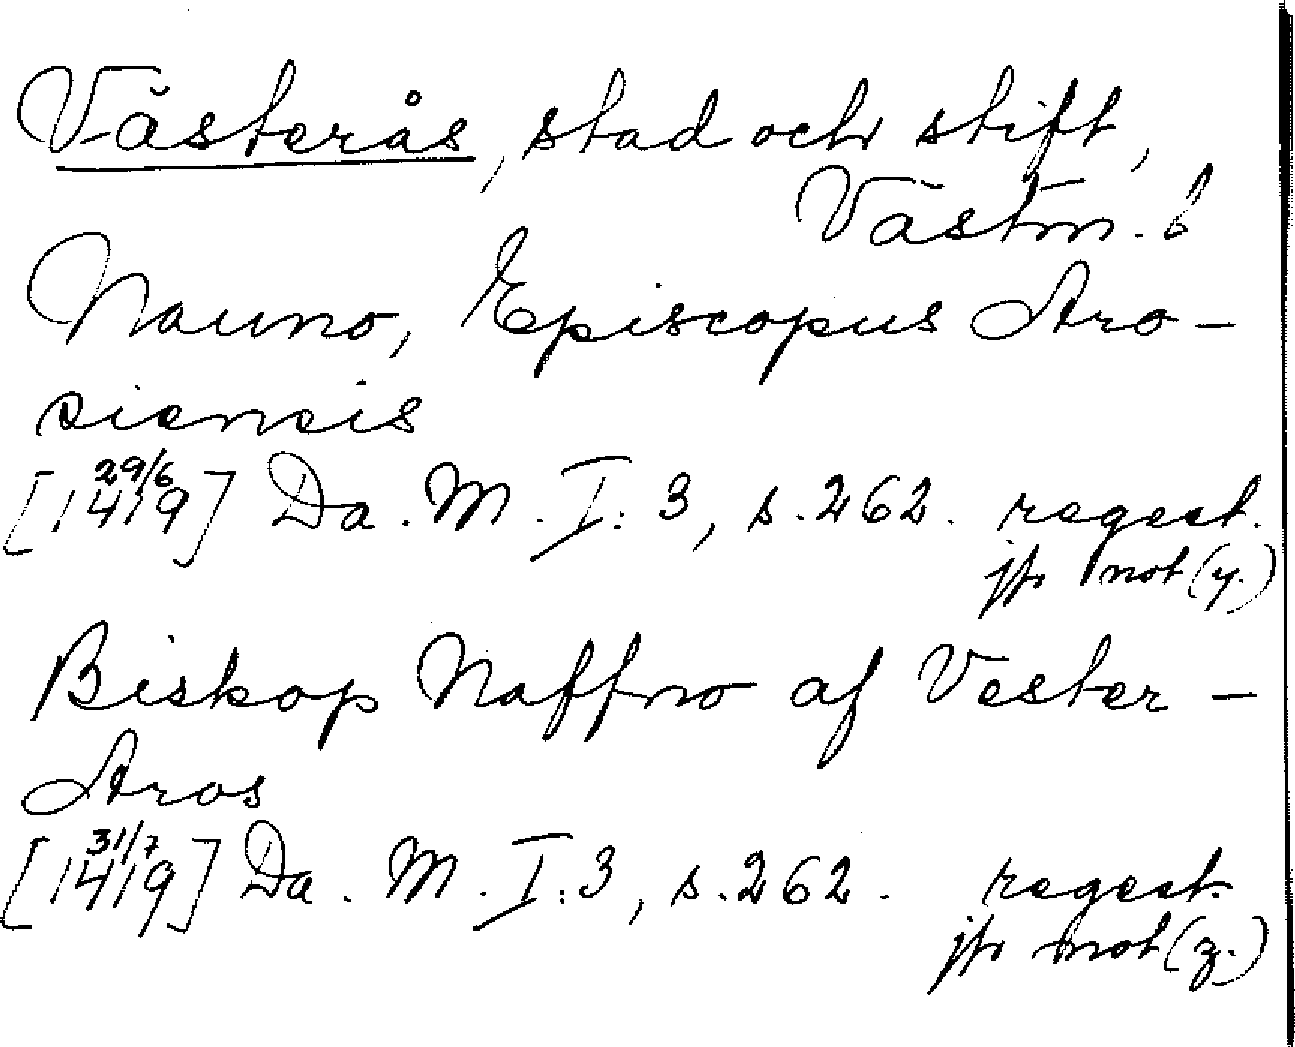 Västerås, stad och stift,
Västm. l
Nauno, Episcopus Aro-
siensis
[29/6 1419] Da. M. I: 3, s. 262. regest.
jfr not (y.)
Biskop Naffno af Vester-
Aros
[31/7 1419] Da. M. I: 3, s. 262. regest.
jfr not (z.)